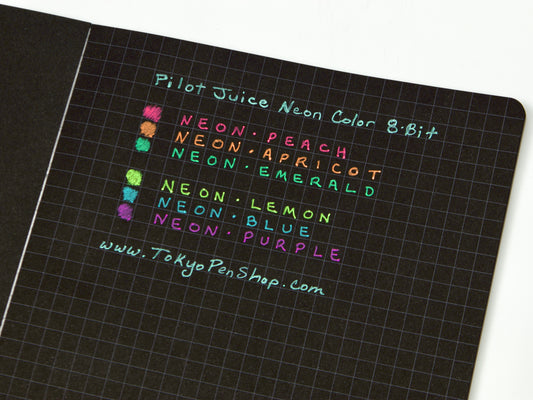 Pilot Juice Neon Color 8·Bit
NEON·PEACH
NEON·APRICOT
NEON·EMERALD
NEON·LEMON
NEON·BLUE
NEON·PURPLE
www.TokyoPenShop.com